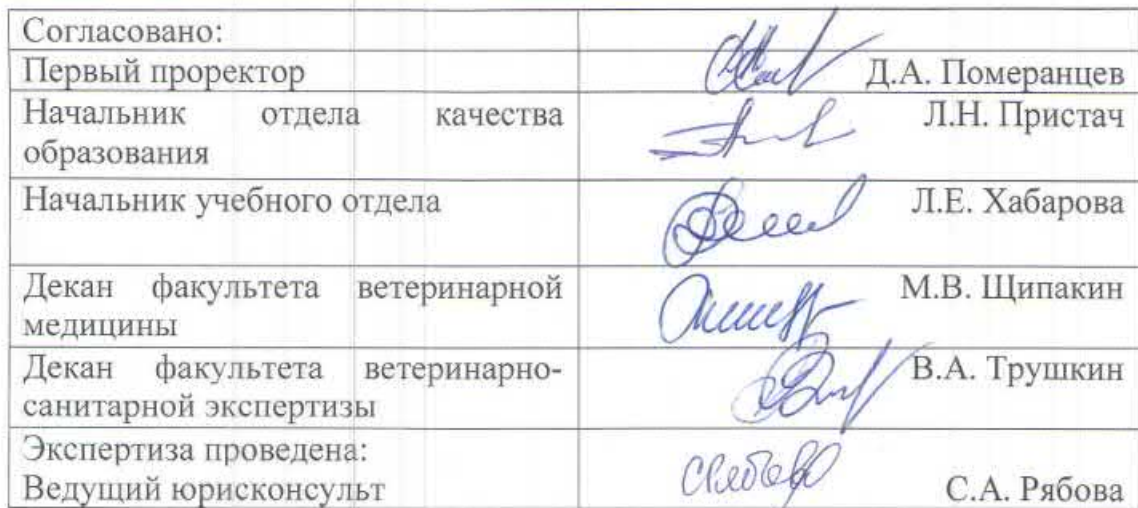 Согласовано:
Первый проректор Д.А. Померанцев
Начальник отдела качества Л.Н. Пристач
образования
Начальник учебного отдела Л.Е. Хабарова
Декан факультета ветеринарной М.В. Щипакин
медицины
Декан факультета ветеринарно- В.А. Трушкин
санитарной экспертизы
Экспертиза проведена:
Ведущий юрисконсульт С.А. Рябова